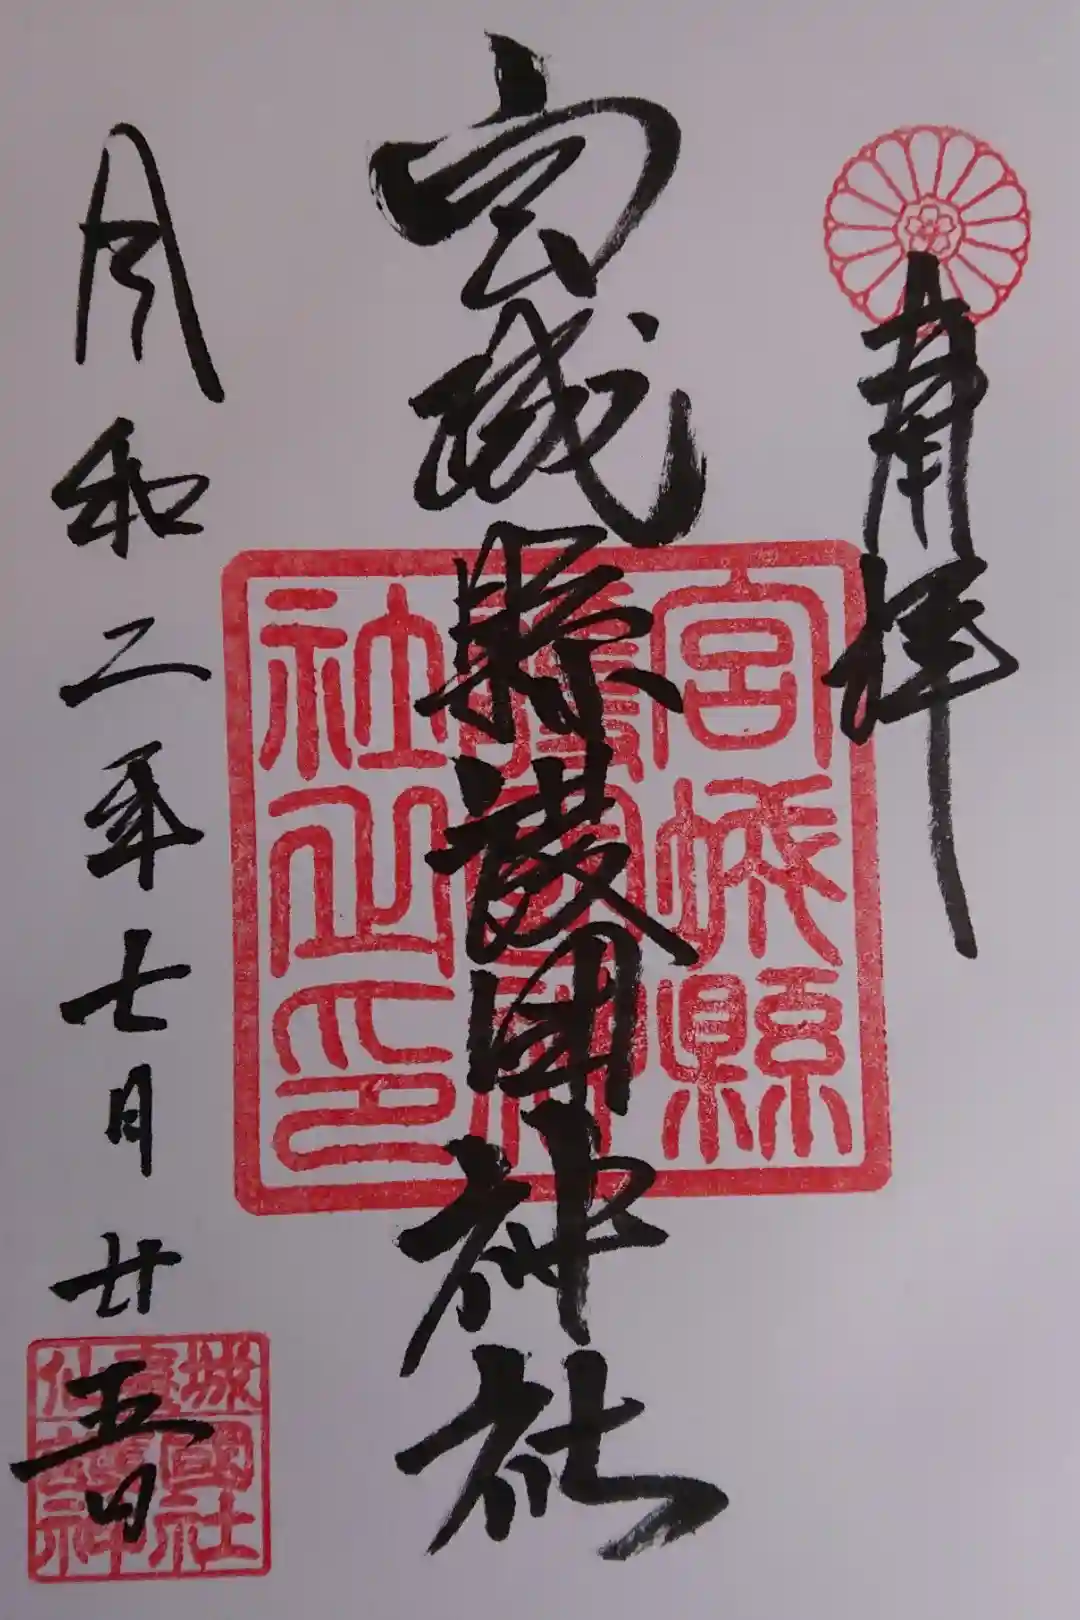 奉拝
宮城縣護国神社
宮城縣
護國神
社之印
令和二年七月廿五日
仙臺城
護國
神社